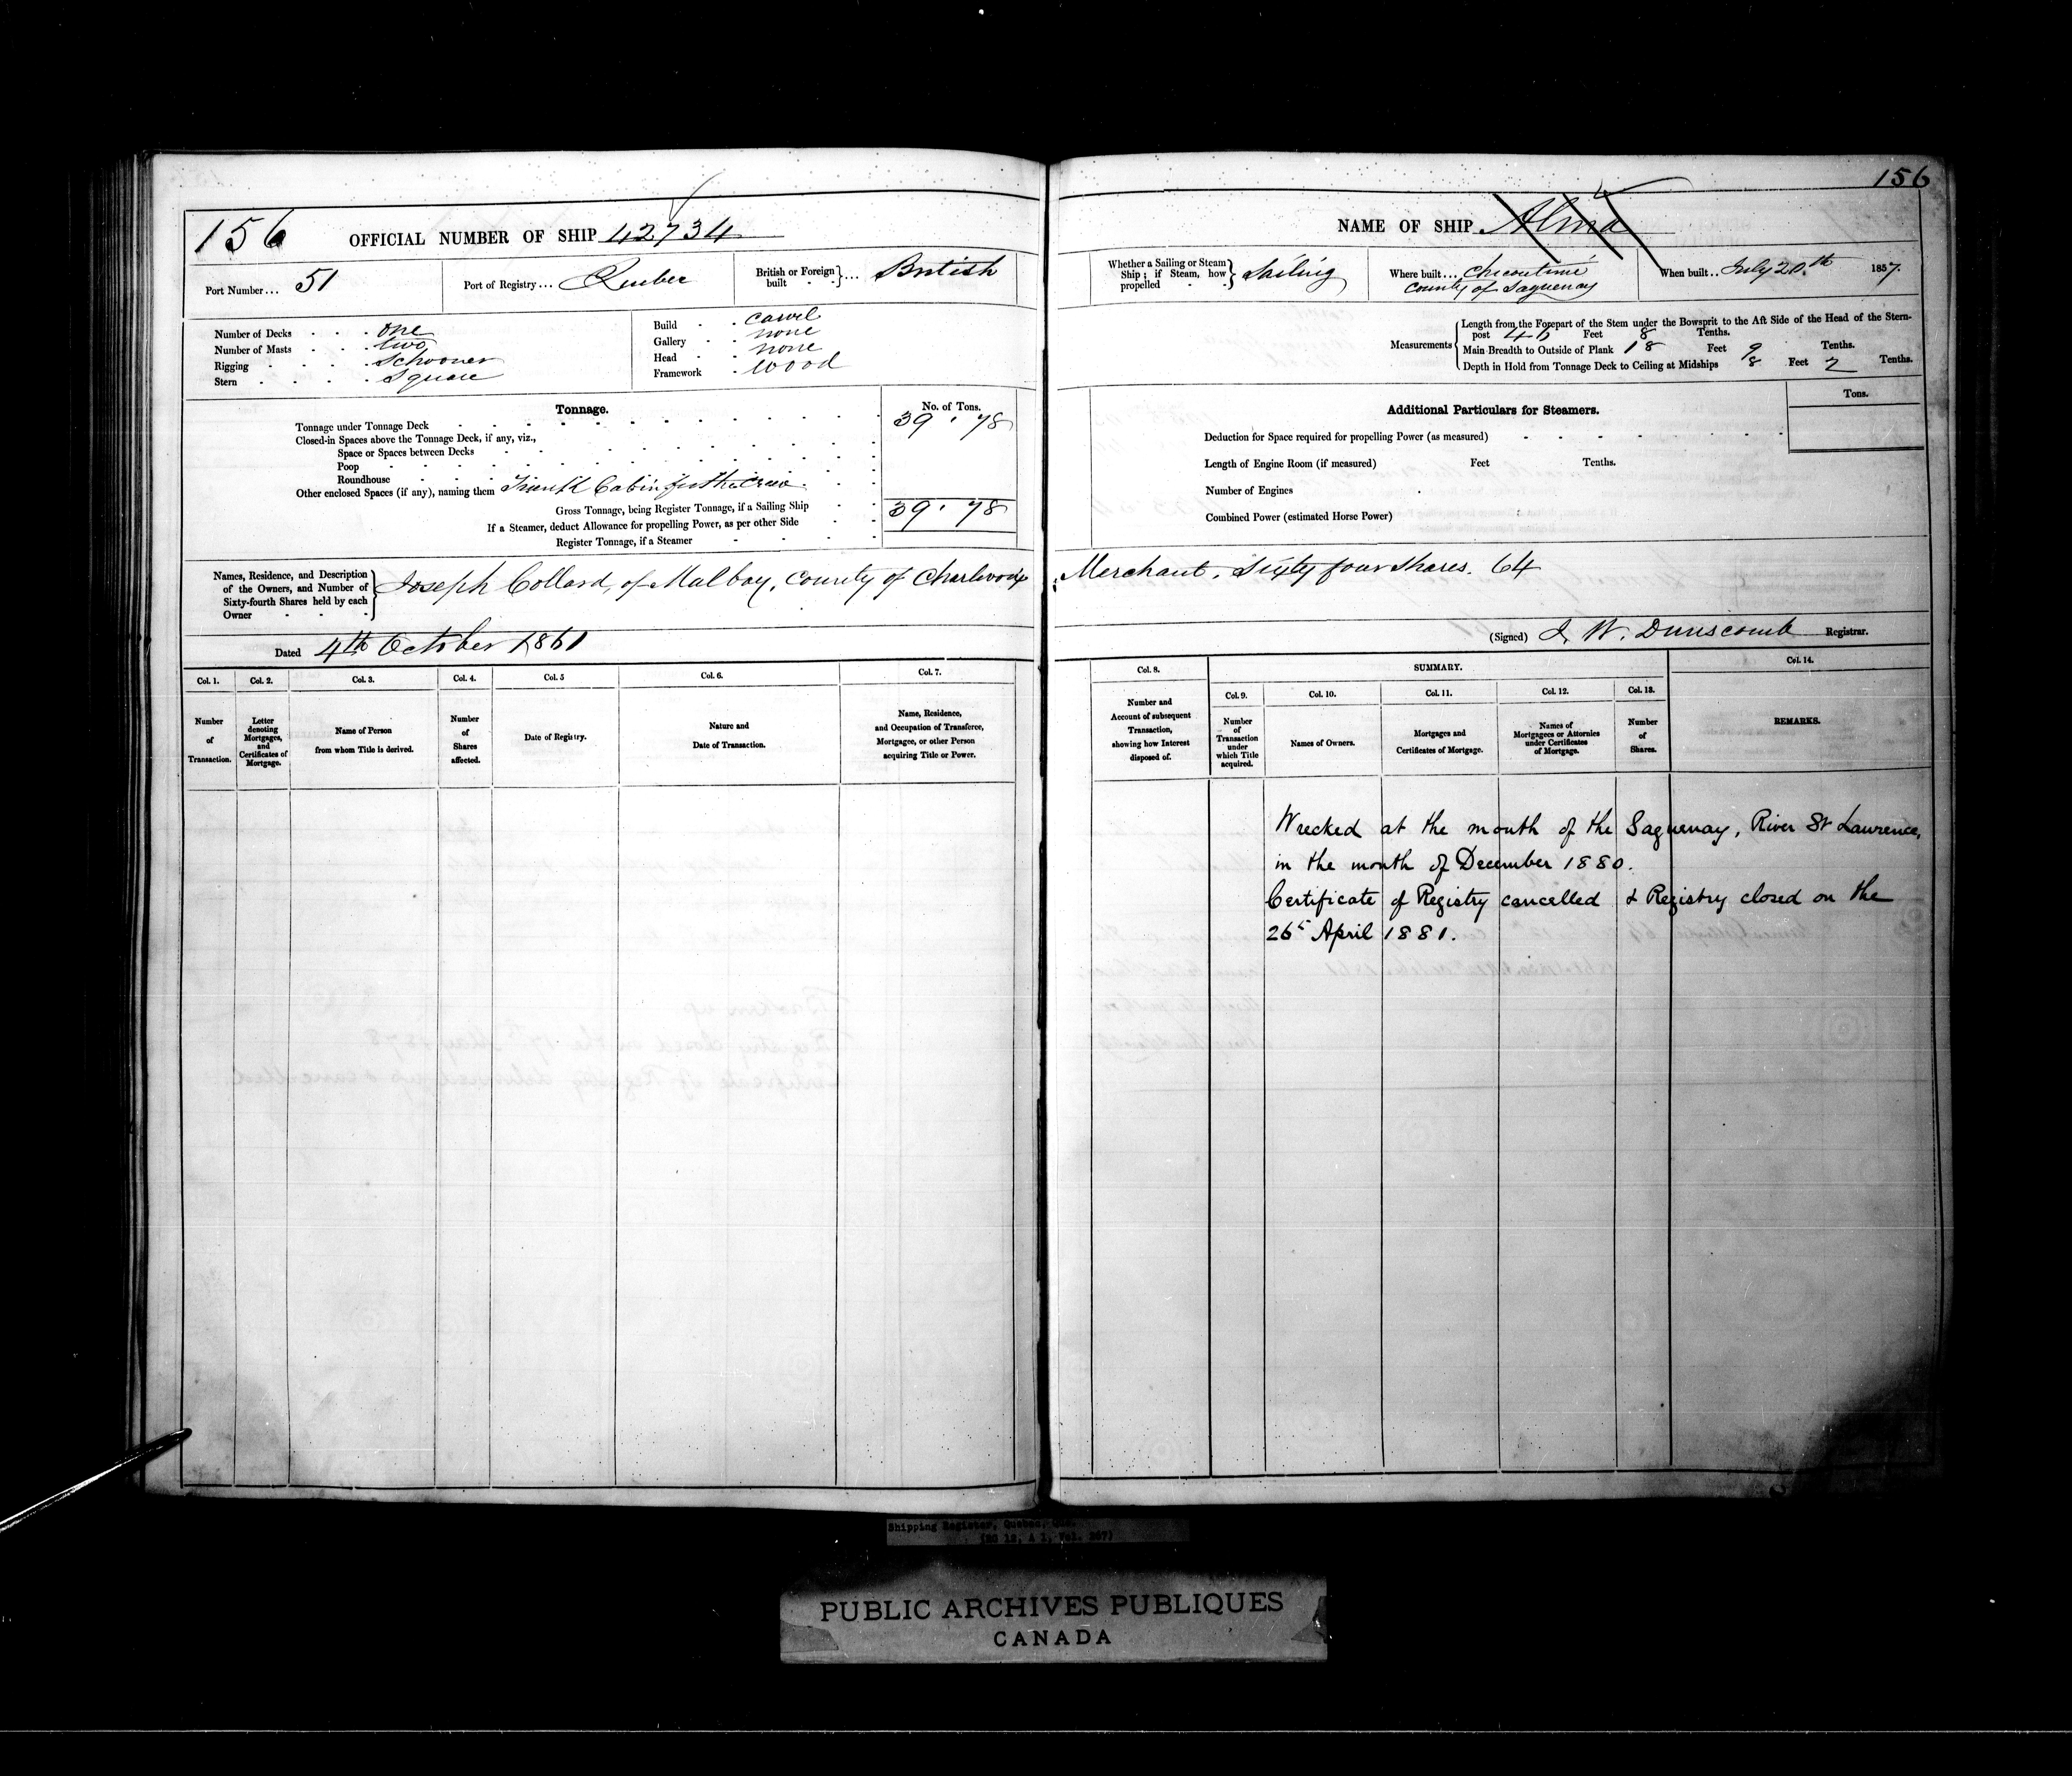 156
156
OFFICIAL NUMBER OF SHIP 42734
NAME OF SHIP Alma
Port Number... 51
Port of Registry... Quebec
British or Foreign built ... British
Whether a Sailing or Steam Ship; if Steam, how propelled Sailing
Where built... Chicoutimi
County of Saguenay
When built.. July 20.th 1857.
Number of Decks . . . one
Number of Masts . . . two
Rigging . . . . Schooner
Stern . . . . Square
Build . . carvel
Gallery . . none
Head . . none
Framework . wood
Measurements
Length from the Forepart of the Stem under the Bowsprit to the Aft Side of the Head of the Stern-
post 46 Feet 8 Tenths.
Main Breadth to Outside of Plank 18 Feet 9 Tenths.
Depth in Hold from Tonnage Deck to Ceiling at Midships 8 Feet 2 Tenths.
Tonnage.
No. of Tons.
Tonnage under Tonnage Deck 39 . 78
Closed-in Spaces above the Tonnage Deck, if any, viz.,
Space or Spaces between Decks
Poop
Roundhouse
Other enclosed Spaces (if any), naming them Cabin for the Crew.
Gross Tonnage, being Register Tonnage, if a Sailing Ship 39 . 78
If a Steamer, deduct Allowance for propelling Power, as per other Side
Register Tonnage, if a Steamer
Additional Particulars for Steamers.
Tons.
Deduction for Space required for propelling Power (as measured)
Length of Engine Room (if measured) Feet Tenths.
Number of Engines
Combined Power (estimated Horse Power)
Names, Residence, and Description
of the Owners, and Number of
Sixty-fourth Shares held by each
Owner
Joseph Collard, of Malbay, County of Charlevoix; Merchant. Sixty four Shares. 64
Dated 4th October 1861
(Signed) J. W. Dunscomb Registrar.
Col. 1.
Number
of
Transaction.
Col. 2.
Letter
denoting
Mortgages,
and
Certificates of
Mortgage.
Col. 3.
Name of Person
from whom Title is derived.
Col. 4.
Number
of
Shares
affected.
Col. 5
Date of Registry.
Col. 6.
Nature and
Date of Transaction.
Col. 7.
Name, Residence,
and Occupation of Transferee,
Mortgagee, or other Person
acquiring Title or Power.
Col. 8.
Number and
Account of subsequent
Transaction,
showing how Interest
disposed of.
SUMMARY.
Col. 9.
Number
of
Transaction
under
which Title
acquired.
Col. 10.
Names of Owners.
Col. 11.
Mortgages and
Certificates of Mortgage.
Col. 12.
Names of
Mortgagees or Attornies
under Certificates
of Mortgage.
Col. 13.
Number
of
Shares.
Col. 14.
REMARKS.
Wrecked at the mouth of the Saguenay, River St Lawrence,
in the month of December 1880.
Certificate of Registry cancelled & Registry closed on the
26t April 1881.
Shipping Register, Quebec, Que.
(RG 12, A 1, Vol. 267)
PUBLIC ARCHIVES PUBLIQUES
CANADA